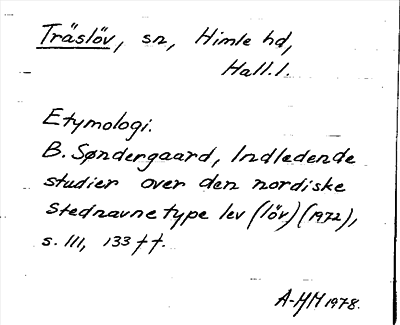 Träslöv, sn, Himle hd,
Hall. l.
Etymologi.
B. Søndergaard, Indledende
studier over den nordiske
stednavnetype lev (löv) (1972),
s. 111, 133 ff.
A-HM 1978.